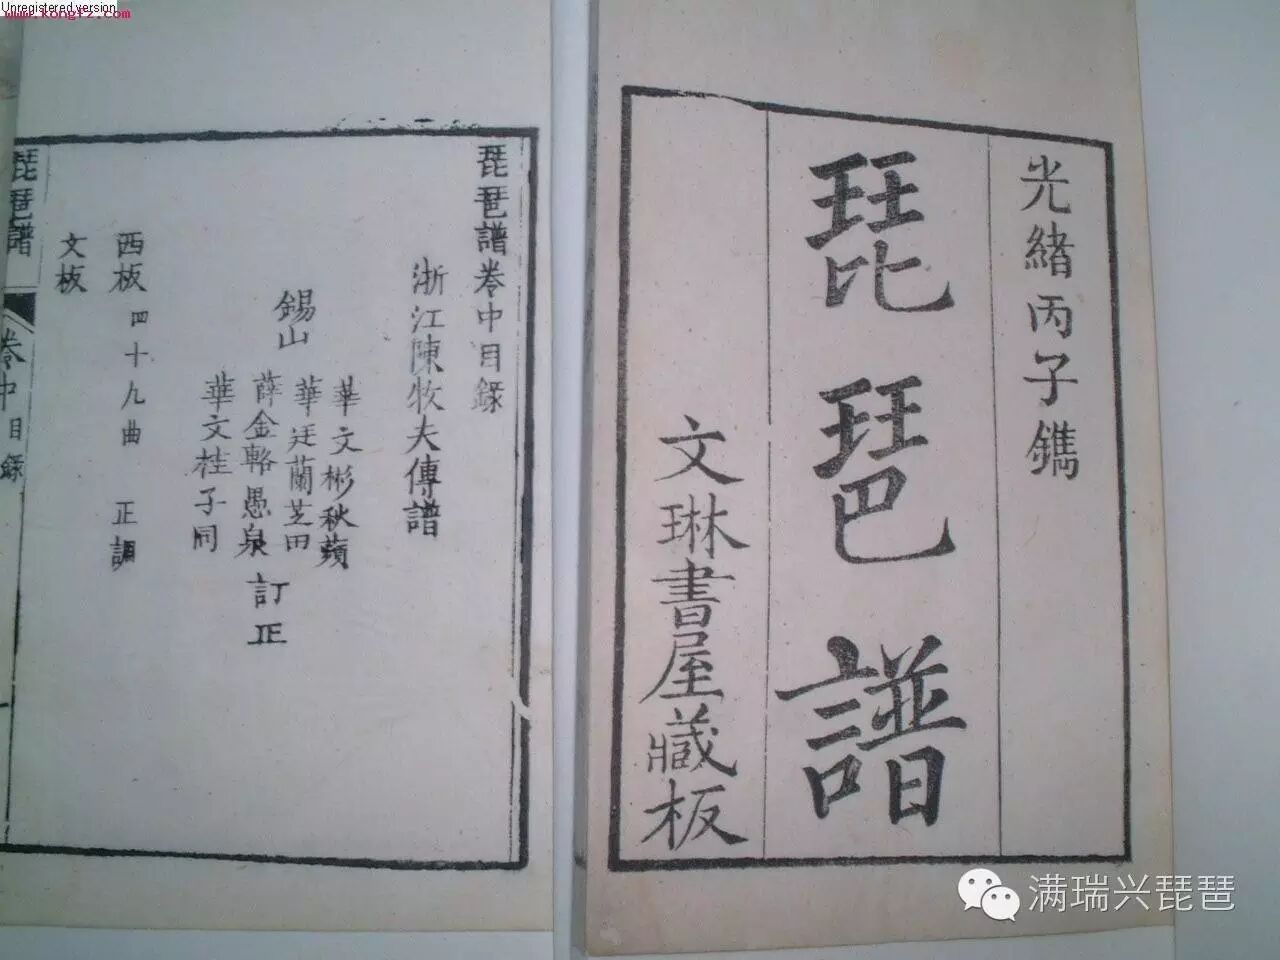 Unregistered version
www.kongfz.com
光緒丙子鐫
琵琶譜
文琳書屋藏板
琵琶譜卷中目錄
浙江陳牧夫傳譜
錫山
華文彬秋蘋
華廷蘭芝田
薛金輅愚泉
華文桂子同
訂正
西板 四十九曲 正調
文板
琵琶譜 卷中目錄
满瑞兴琵琶